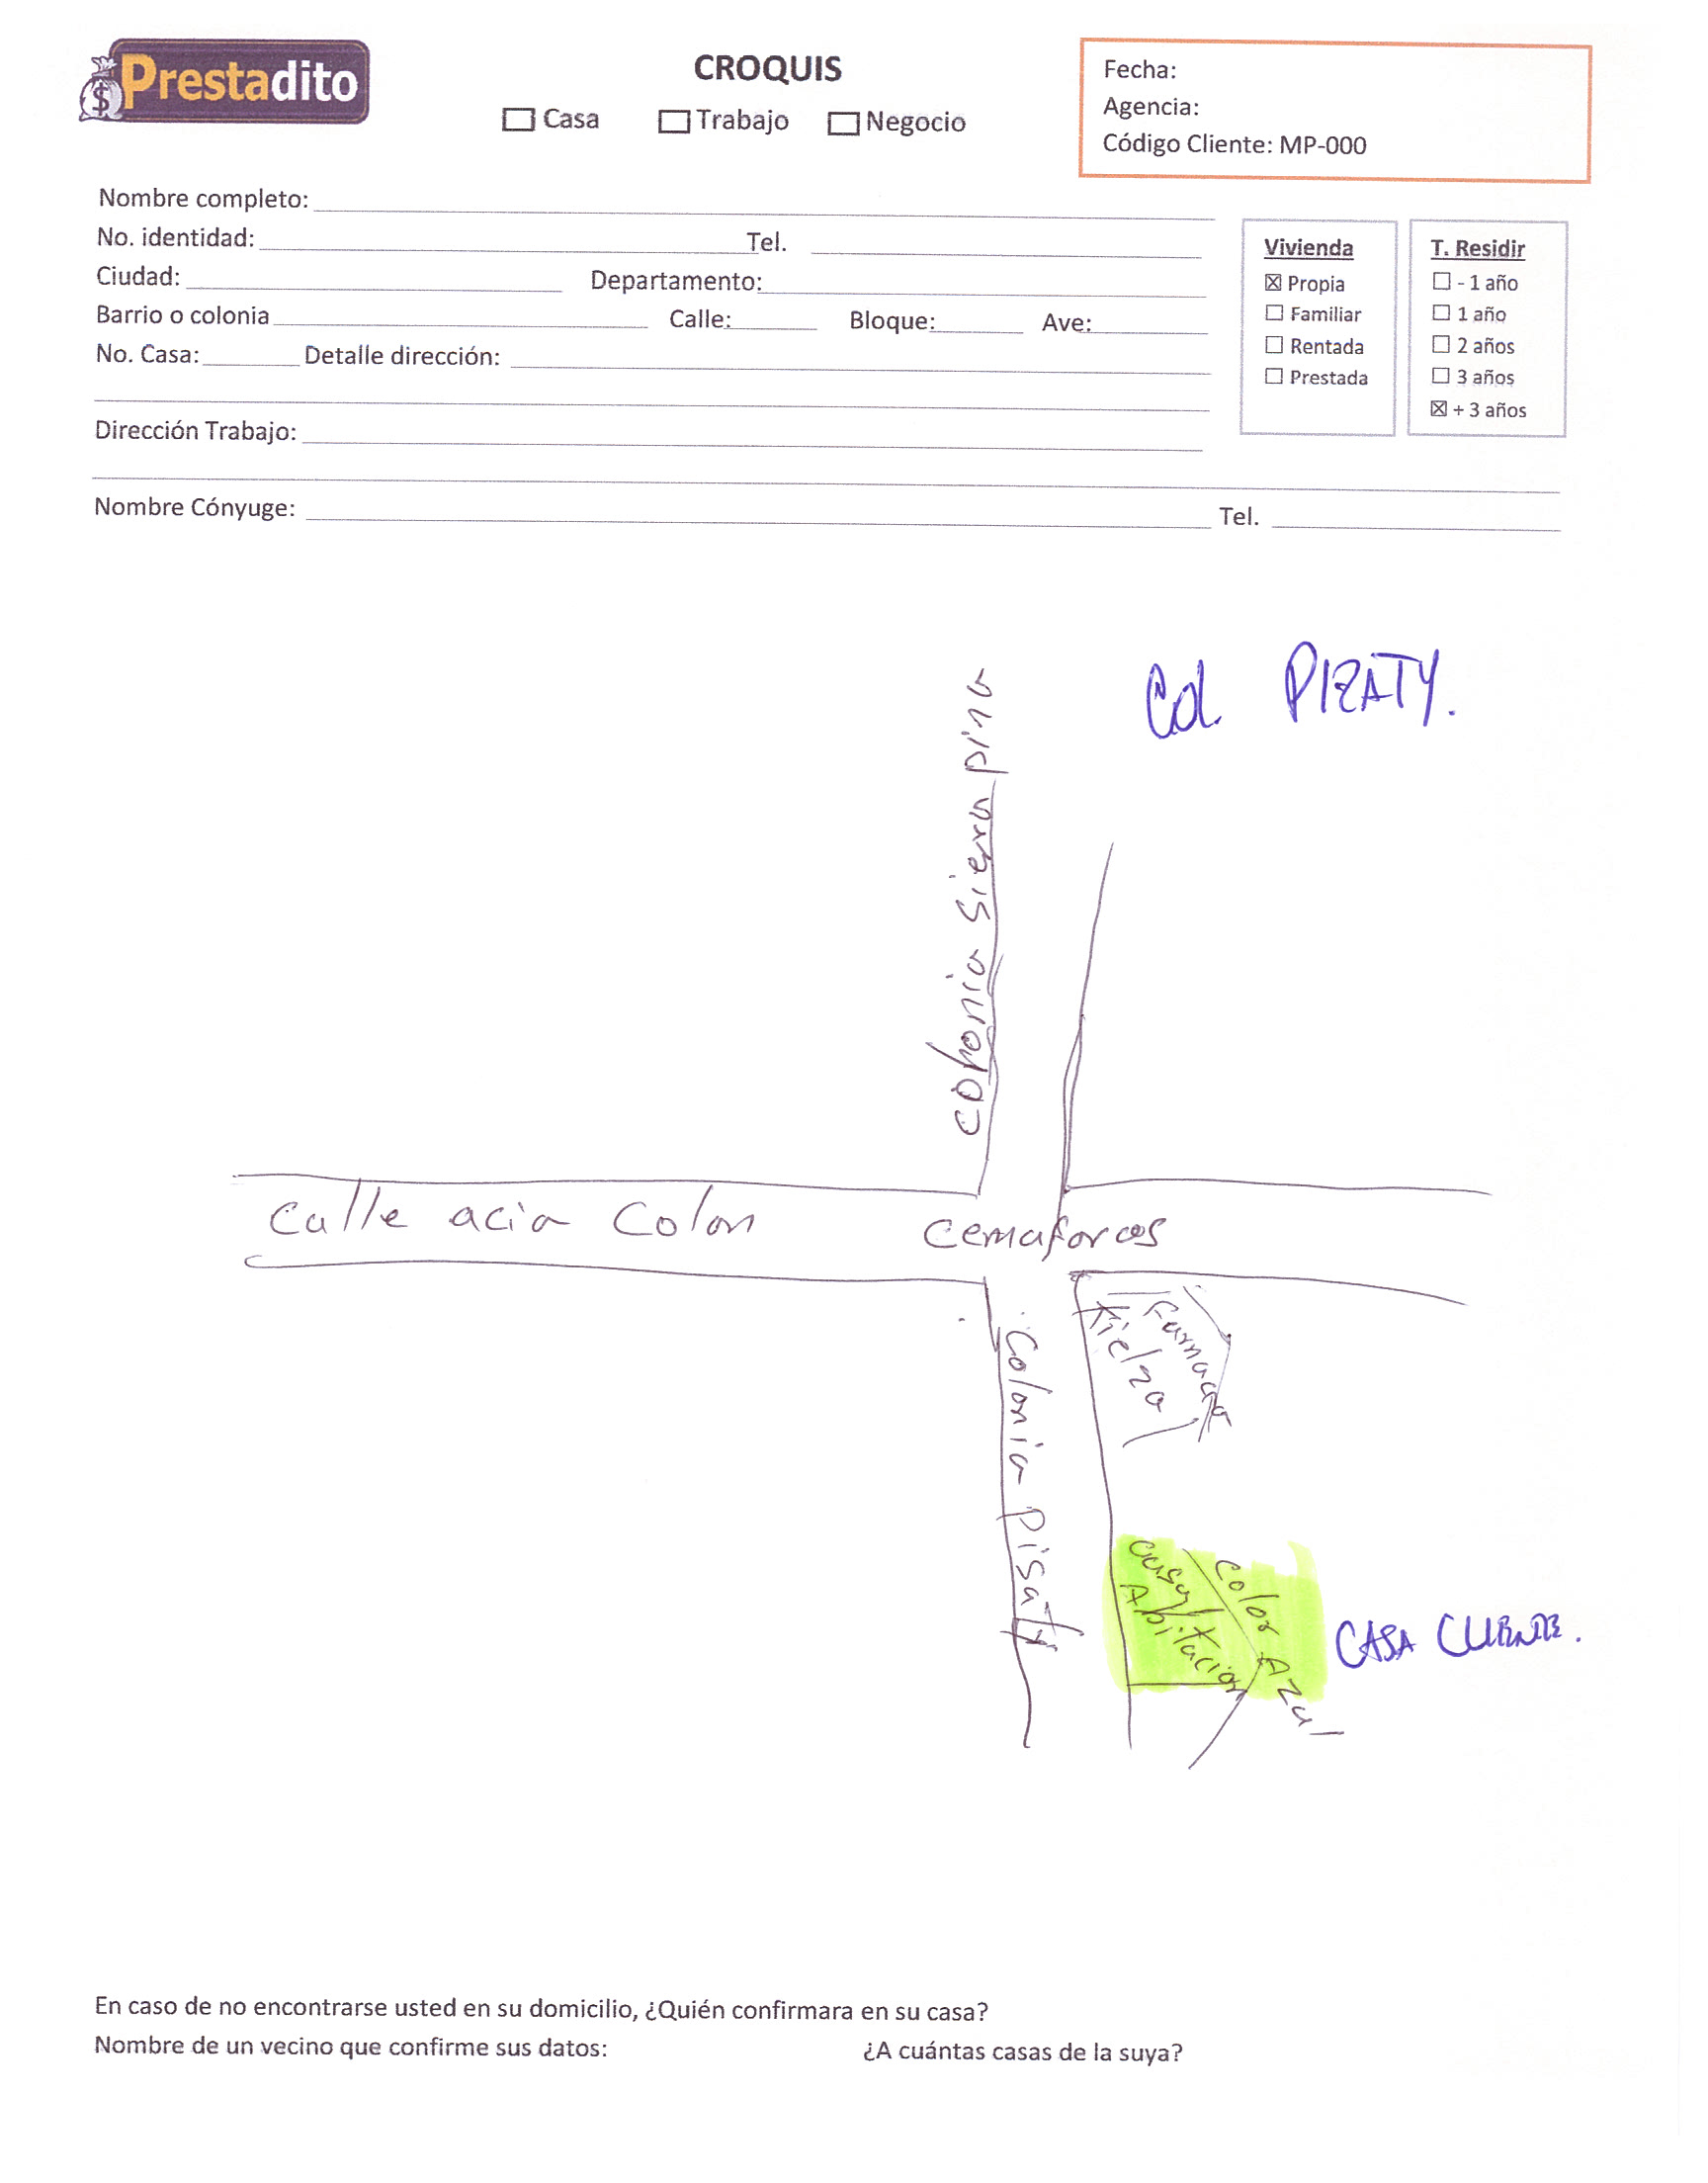 Prestadito
CROQUIS
☐ Casa ☐ Trabajo ☐ Negocio
Fecha:
Agencia:
Código Cliente: MP-000
Nombre completo:
No. identidad: Tel.
Ciudad: Departamento:
Barrio o colonia Calle: Bloque: Ave:
No. Casa: Detalle dirección:
Dirección Trabajo:
Nombre Cónyuge: Tel.
Vivienda
☒ Propia
☐ Familiar
☐ Rentada
☐ Prestada
T. Residir
☐ - 1 año
☐ 1 año
☐ 2 años
☐ 3 años
☒ + 3 años
Col. PIZATY.
colonia sierra pina
Calle acia Colon
Cemaforos
Colonia Pisaty
Farmacia
Kielsa
casa
Abitacion
Color Azul
CASA CLIENTE.
En caso de no encontrarse usted en su domicilio, ¿Quién confirmara en su casa?
Nombre de un vecino que confirme sus datos: ¿A cuántas casas de la suya?